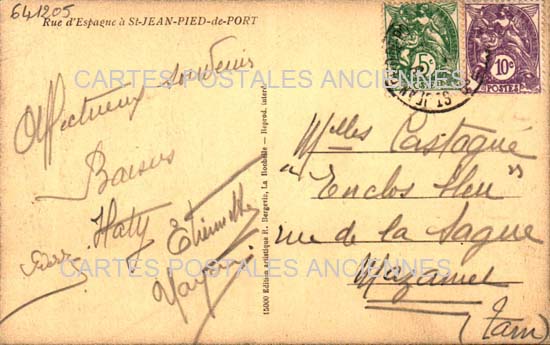 641205
Rue d'Espagne à St-JEAN-PIED-de-PORT
5c
10c
POSTES
CARTES POSTALES ANCIENNES
Affectueux souvenir
Baisers
Haty
Etiennette
15000 Edition artistique R. Bergevin, La Rochelle — Reprod. interd.
Mlles Castagné
"Enclos bleu"
rue de la Sagne
Mazamet
(Tarn)
CARTES POSTALES ANCIENNES